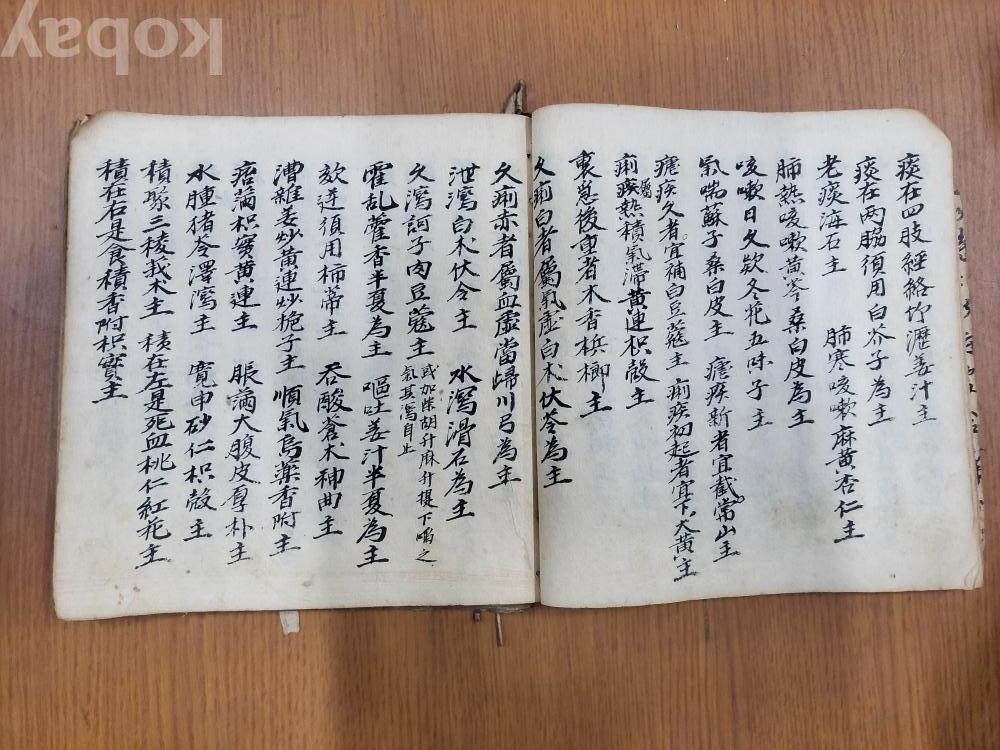 痰在四肢經絡竹瀝姜汁主
痰在两脇須用白芥子為主
老痰海石主 肺寒咳嗽麻黄杏仁主
肺熱咳嗽黄芩桑白皮為主
咳嗽日久欵冬花五味子主
氣喘蘇子桑白皮主 瘧疾新者宜截常山主
瘧疾久者宜補白豆蔻主 痢疾初起者宜下大黄主
痢疾屬熱積氣滯黄連枳殼主
裏急後重者木香梹榔主
久痢白者屬氣虚白术伏苓為主
久痢赤者屬血虚當歸川弓為主
泄瀉白术伏令主 水瀉滑石為主
久瀉訶子肉豆蔻主 或加柴胡升麻升提下陷之
氣其瀉自止
霍乱藿香半夏為主 嘔吐姜汁半夏為主
欬逆須用柿蒂主 吞酸蒼术神曲主
漕雜姜炒黄連炒梔子主 順氣烏藥香附主
痞滿枳實黄連主 脹滿大腹皮厚朴主
水腫猪苓澤瀉主 寬中砂仁枳殼主
積聚三稜莪术主 積在左是死血桃仁紅花主
積在右是食積香附枳實主
kobay